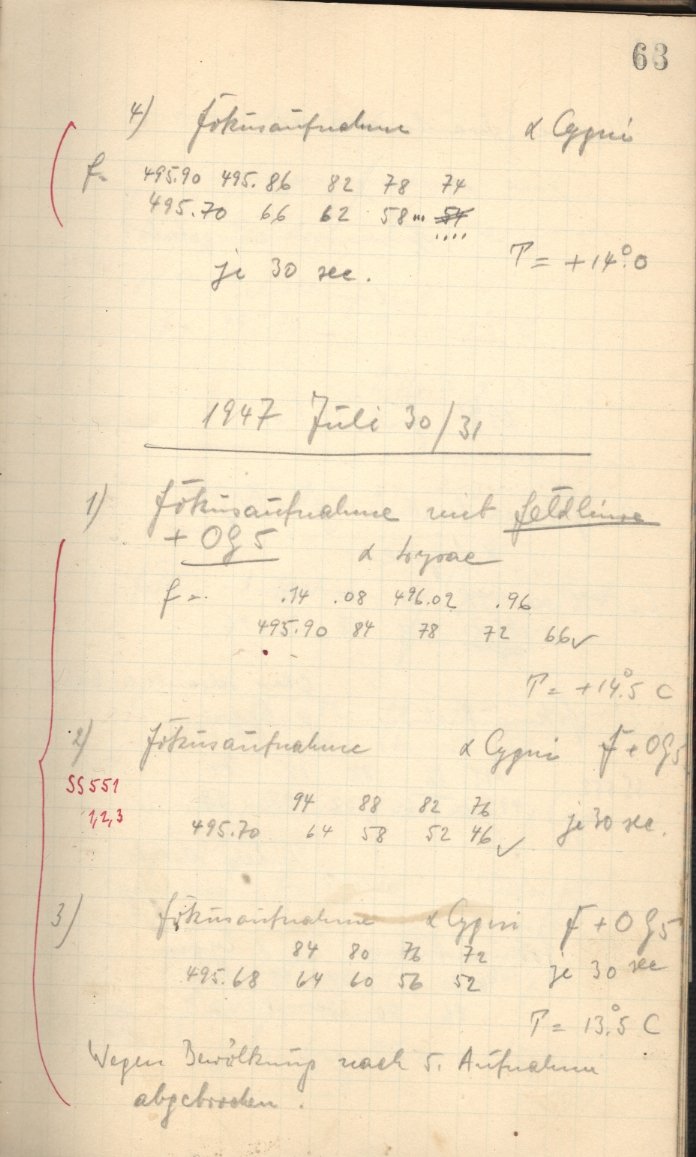 63
4) Fokusaufnahme α Cygni
f= 495.90 495.86 82 78 74
495.70 66 62 58... 54
....
T = +14°.0
je 30 sec.
1947 Juli 30/31
1) Fokusaufnahme mit Feldlinse
+ OG5 α Lyrae
f = .14 .08 496.02 .96
495.90 84 78 72 66 ✓
T = +14°.5 C
2) Fokusaufnahme α Cygni F + OG5
SS551
94 88 82 76 je 30 sec.
1,2,3
495.70 64 58 52 46 ✓
3) Fokusaufnahme α Cygni F + OG5
84 80 76 72
495.68 64 60 56 52 je 30 sec
T = 13°.5 C
Wegen Bewölkung nach 5. Aufnahme
abgebrochen.